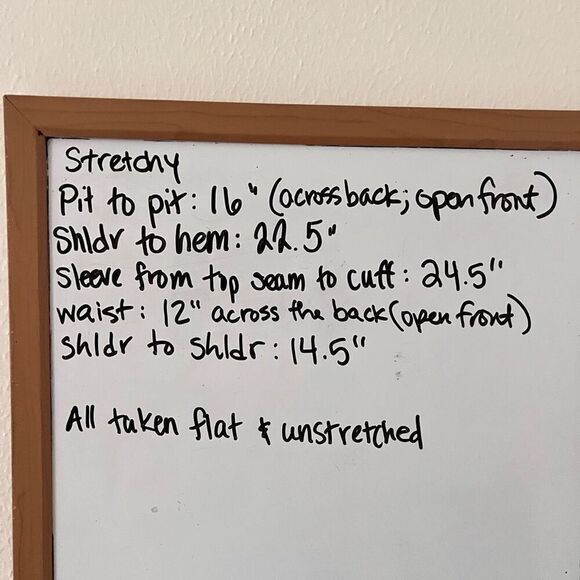 Stretchy
Pit to pit: 16" (across back; open front)
Shldr to hem: 22.5"
Sleeve from top seam to cuff: 24.5"
waist: 12" across the back (open front)
Shldr to Shldr: 14.5"
All taken flat & unstretched